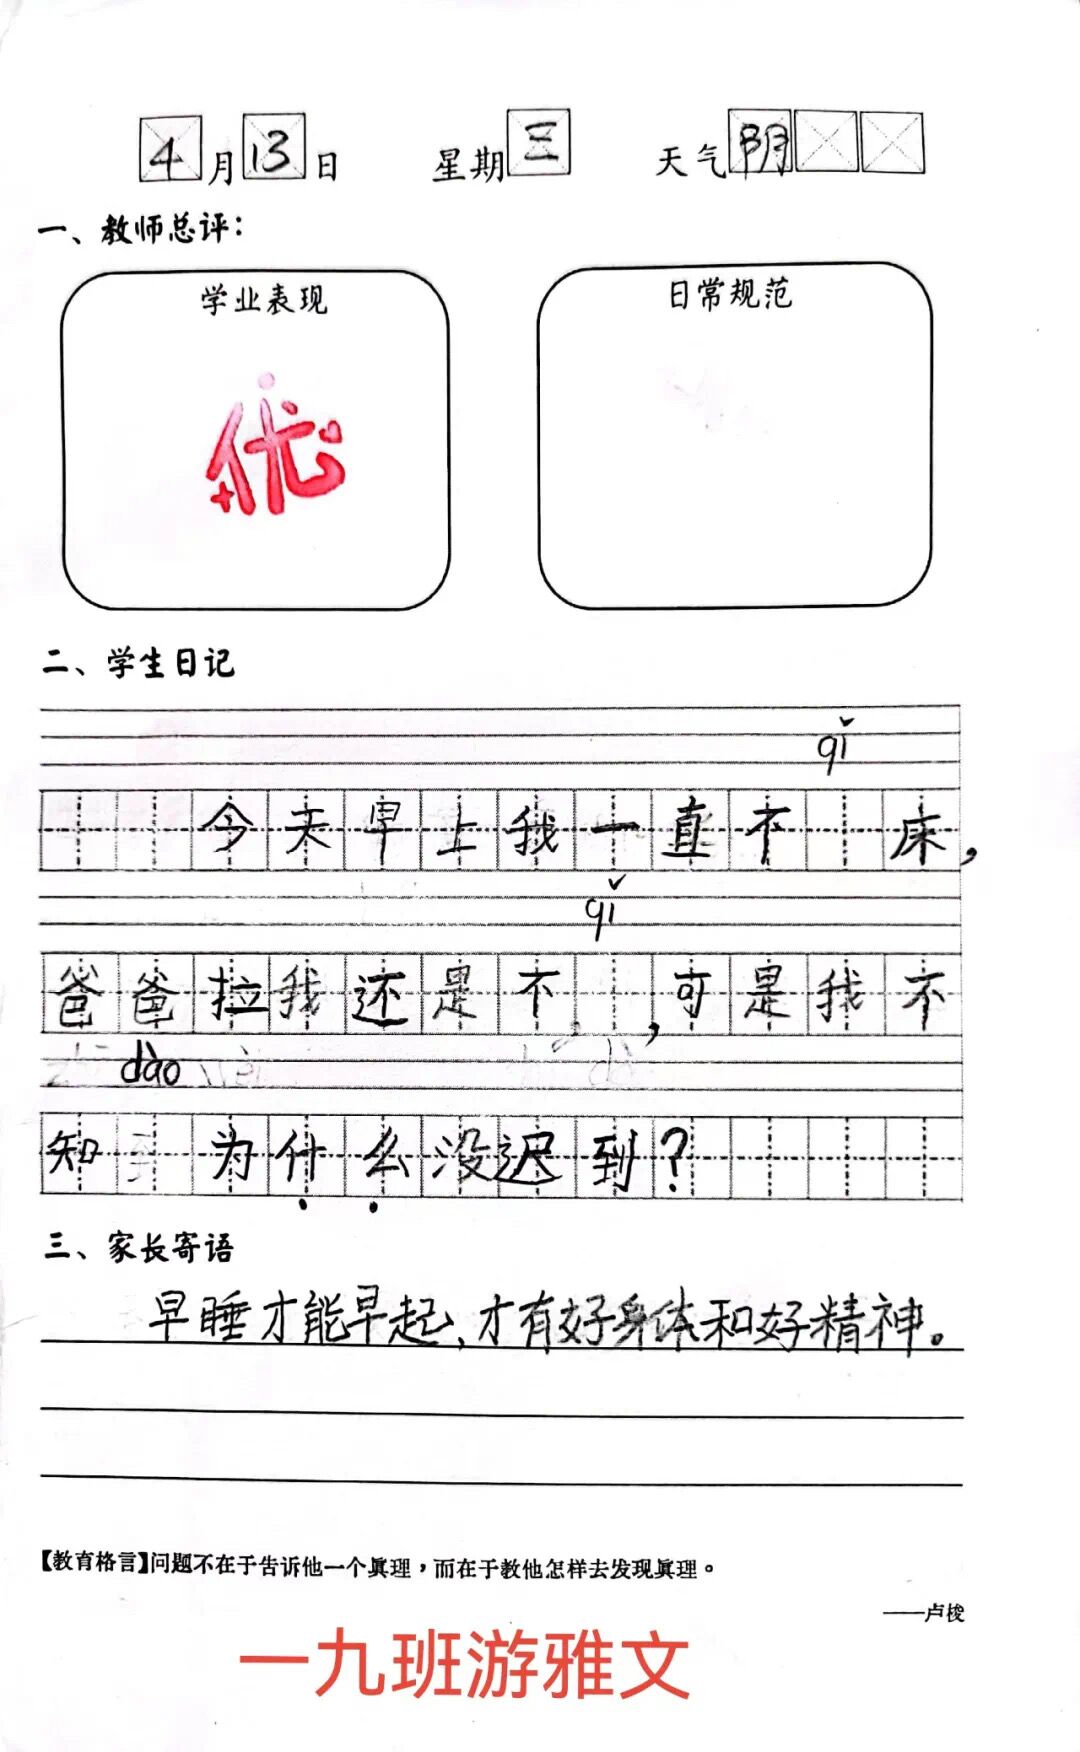 4月13日 星期三 天气阴
一、教师总评：
学业表现 日常规范
优
二、学生日记
qǐ
今天早上我一直不 床，
qǐ
爸爸拉我还是不 ，可是我不
dào
知 为什么没迟到？
三、家长寄语
早睡才能早起、才有好身体和好精神。
【教育格言】问题不在于告诉他一个真理，而在于教他怎样去发现真理。
——卢梭
一九班游雅文